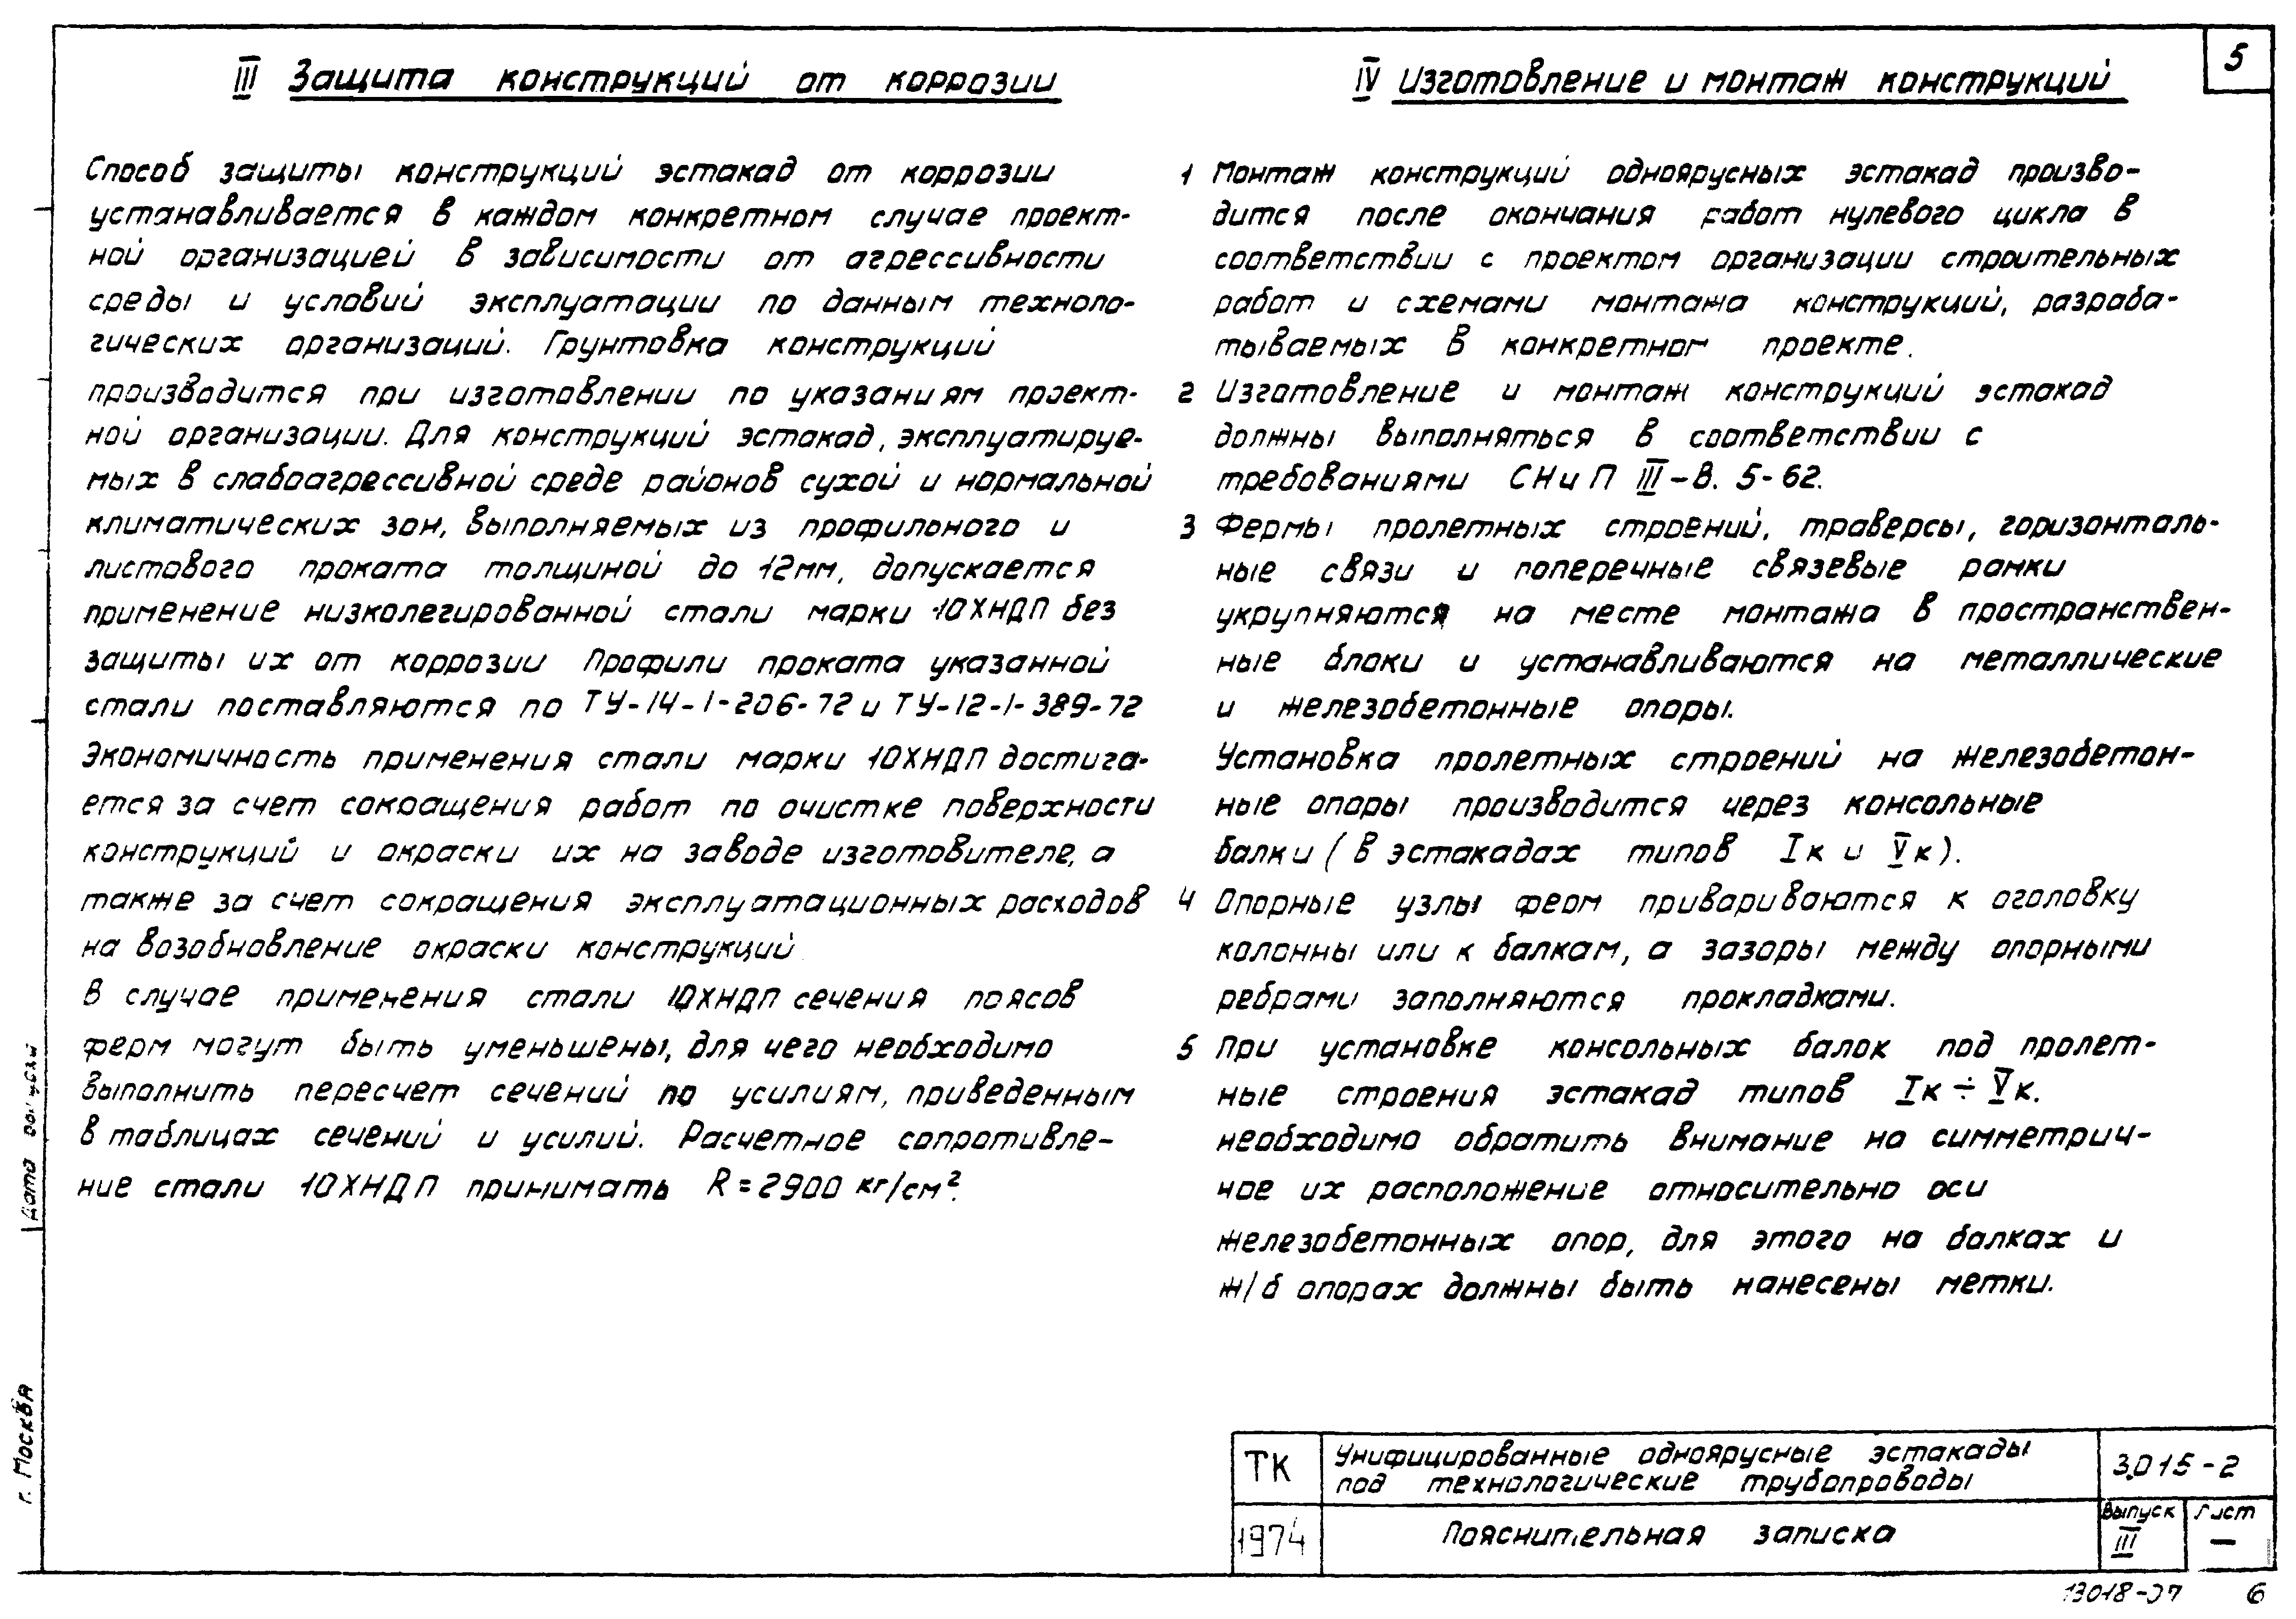 5
III Защита конструкций от коррозии
Способ защиты конструкций эстакад от коррозии
устанавливается в каждом конкретном случае проект-
ной организацией в зависимости от агрессивности
среды и условий эксплуатации по данным техноло-
гических организаций. Грунтовка конструкций
производится при изготовлении по указаниям проект-
ной организации. Для конструкций эстакад, эксплуатируе-
мых в слабоагрессивной среде районов сухой и нормальной
климатических зон, выполняемых из профильного и
листового проката толщиной до 12мм, допускается
применение низколегированной стали марки 10ХНДП без
защиты их от коррозии Профили проката указанной
стали поставляются по ТУ-14-1-206-72 и ТУ-12-1-389-72
Экономичность применения стали марки 10ХНДП достига-
ется за счет сокращения работ по очистке поверхности
конструкций и окраски их на заводе изготовителе, а
также за счет сокращения эксплуатационных расходов
на возобновление окраски конструкций
В случае применения стали 10ХНДП сечения поясов
ферм могут быть уменьшены, для чего необходимо
выполнить пересчет сечений по усилиям, приведенным
в таблицах сечений и усилий. Расчетное сопротивле-
ние стали 10ХНДП принимать R = 2900 кг/см².
IV Изготовление и монтаж конструкций
1 Монтаж конструкций одноярусных эстакад произво-
дится после окончания работ нулевого цикла в
соответствии с проектом организации строительных
работ и схемами монтажа конструкций, разраба-
тываемых в конкретном проекте.
2 Изготовление и монтаж конструкций эстакад
должны выполняться в соответствии с
требованиями СНиП III-В. 5-62.
3 Фермы пролетных строений, траверсы, горизонталь-
ные связи и поперечные связевые рамки
укрупняются на месте монтажа в пространствен-
ные блоки и устанавливаются на металлические
и железобетонные опоры.
Установка пролетных строений на железобетон-
ные опоры производится через консольные
балки (в эстакадах типов Iк и Vк).
4 Опорные узлы ферм привариваются к оголовку
колонны или к балкам, а зазоры между опорными
ребрами заполняются прокладками.
5 При установке консольных балок под пролет-
ные строения эстакад типов Iк ÷ Vк.
необходимо обратить внимание на симметрич-
ное их расположение относительно оси
железобетонных опор, для этого на балках и
ж/б опорах должны быть нанесены метки.
Дата выпуска
г. Москва
ТК
Унифицированные одноярусные эстакады
под технологические трубопроводы
3.015-2
1974
Пояснительная записка
Выпуск
III
Лист
—
13018-07 6